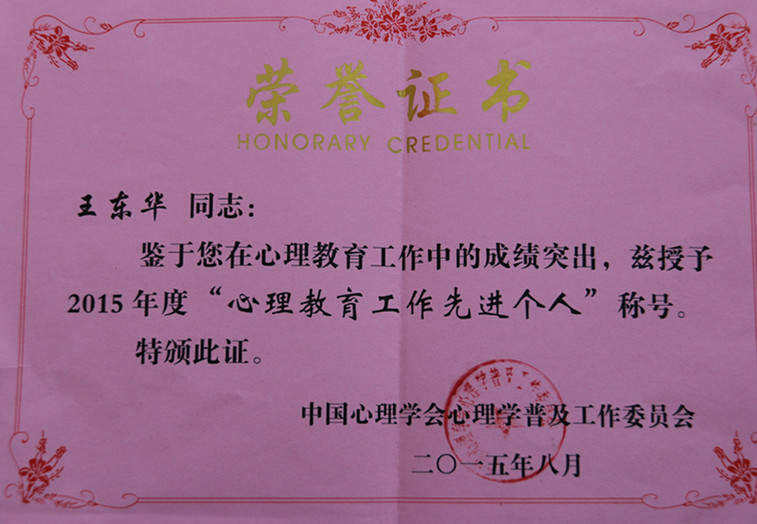 荣誉证书
HONORARY CREDENTIAL
王东华 同志：
鉴于您在心理教育工作中的成绩突出，兹授予
2015年度“心理教育工作先进个人”称号。
特颁此证。
中国心理学会心理学普及工作委员会
二〇一五年八月